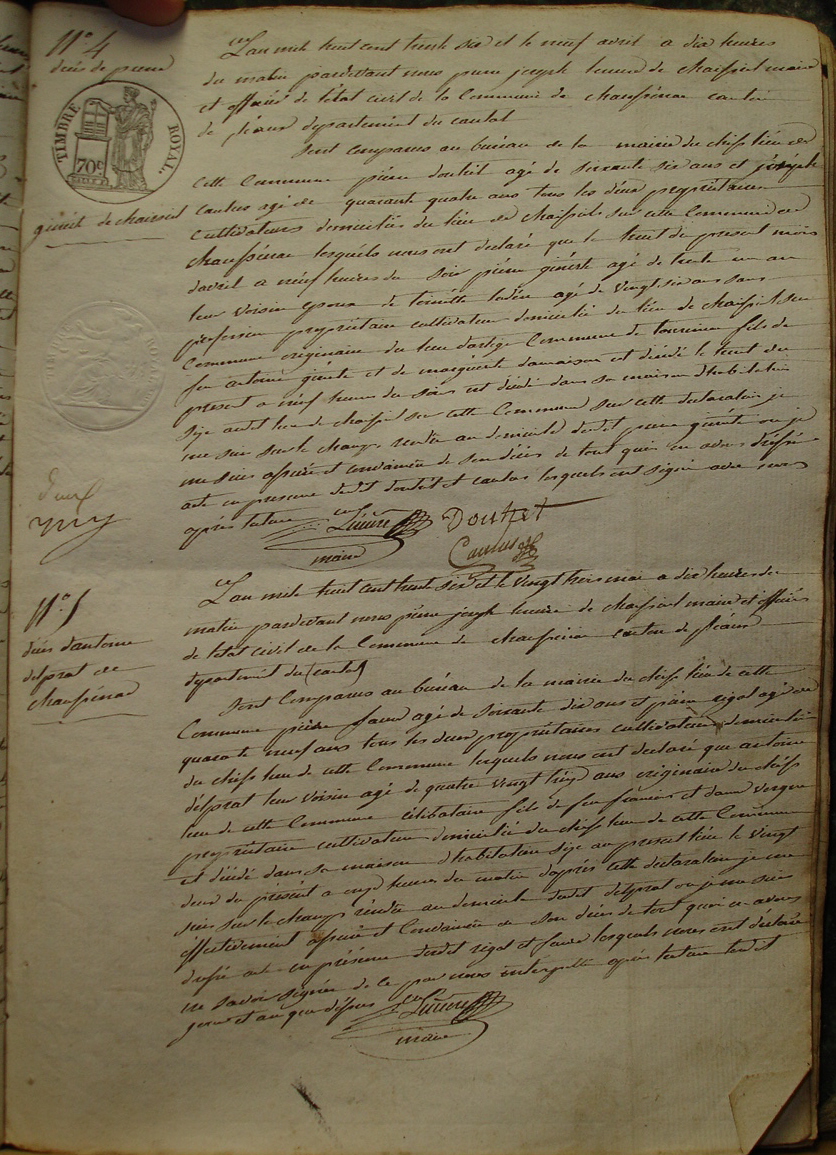 N° 4
décès de pierre
TIMBRE ROYAL.
70c
ginest de chaissiol
L'an mil huit cent trente six et le neuf avril a dix heures
du matin pardevant nous pierre joseph de chaissiol maire
et officié de l'état civil de la Commune de chaussenac canton
de pleaux departement du cantal
Sont comparus au bureau de la mairie du chef lieu de
cette Commune pierre agé de soixante six ans et joseph
agé de quarante quatre ans tous les deux propriétaires
cultivateurs domiciliés du lieu de chaissiol sur cette Commune de
chaussenac lesquels nous ont declaré que le huit du present mois
davril a neuf heures du soir pierre agé de trente un an
leur voisin epoux de agé de vingt six ans sans
profession propriétaire cultivateur domicilié du lieu de chaissiol sur
Commune originaire du lieu Commune de fils de
feu antoine et de est décédé le huit du
present a neuf heures du soir est décédé dans sa maison d'habitation
sise audit lieu de chaissiol sur cette Commune sur cette declaration je
me suis sur le champ rendu au domicile dudit pierre ou je
me suis assuré et convaincu de son décès de tout quoi en avons dressé
acte en presence dudit et lesquels ont signé avec nous
après lecture
maire
Douhet
N° 5
décès dantoine
delprat de
chaussenac
L'an mil huit cent trente six et le vingt trois mai a dix heures du
matin pardevant nous pierre joseph de chaissiol maire et officié
de l'état civil de la Commune de chaussenac canton de pleaux
departement du cantal
Sont Comparus au bureau de la mairie du chef lieu de cette
Commune pierre faure agé de soixante dix ans et pierre rigal agé de
quarante neuf ans tous les deux propriétaires cultivateurs domiciliés
du chef lieu de cette Commune lesquels nous ont declaré que antoine
delprat leur voisin agé de quatre vingt ans originaire du chef
lieu de cette Commune célibataire fils de feu et
propriétaire cultivateur domicilié du chef lieu de cette Commune
est décédé dans sa maison d'habitation sise au present lieu le vingt
deux du présent a onze heures du matin d'après cette declaration je me
suis sur le champ rendu au domicile dudit delprat ou je me suis
effectivement assuré et Convaincu de son décès de tout quoi en avons
dressé acte en présence dudit rigal et faure lesquels nous ont déclaré
ne savoir signer de ce par nous après lecture
jour et an que dessus
maire